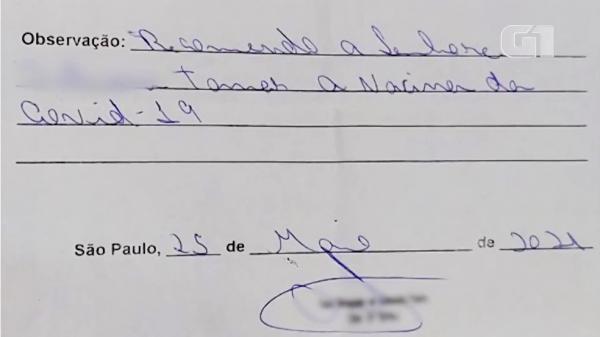 G1
Observação: Recomendo a Senhora
Tomar a Vacina da
Covid-19
São Paulo, 25 de Maio de 2021